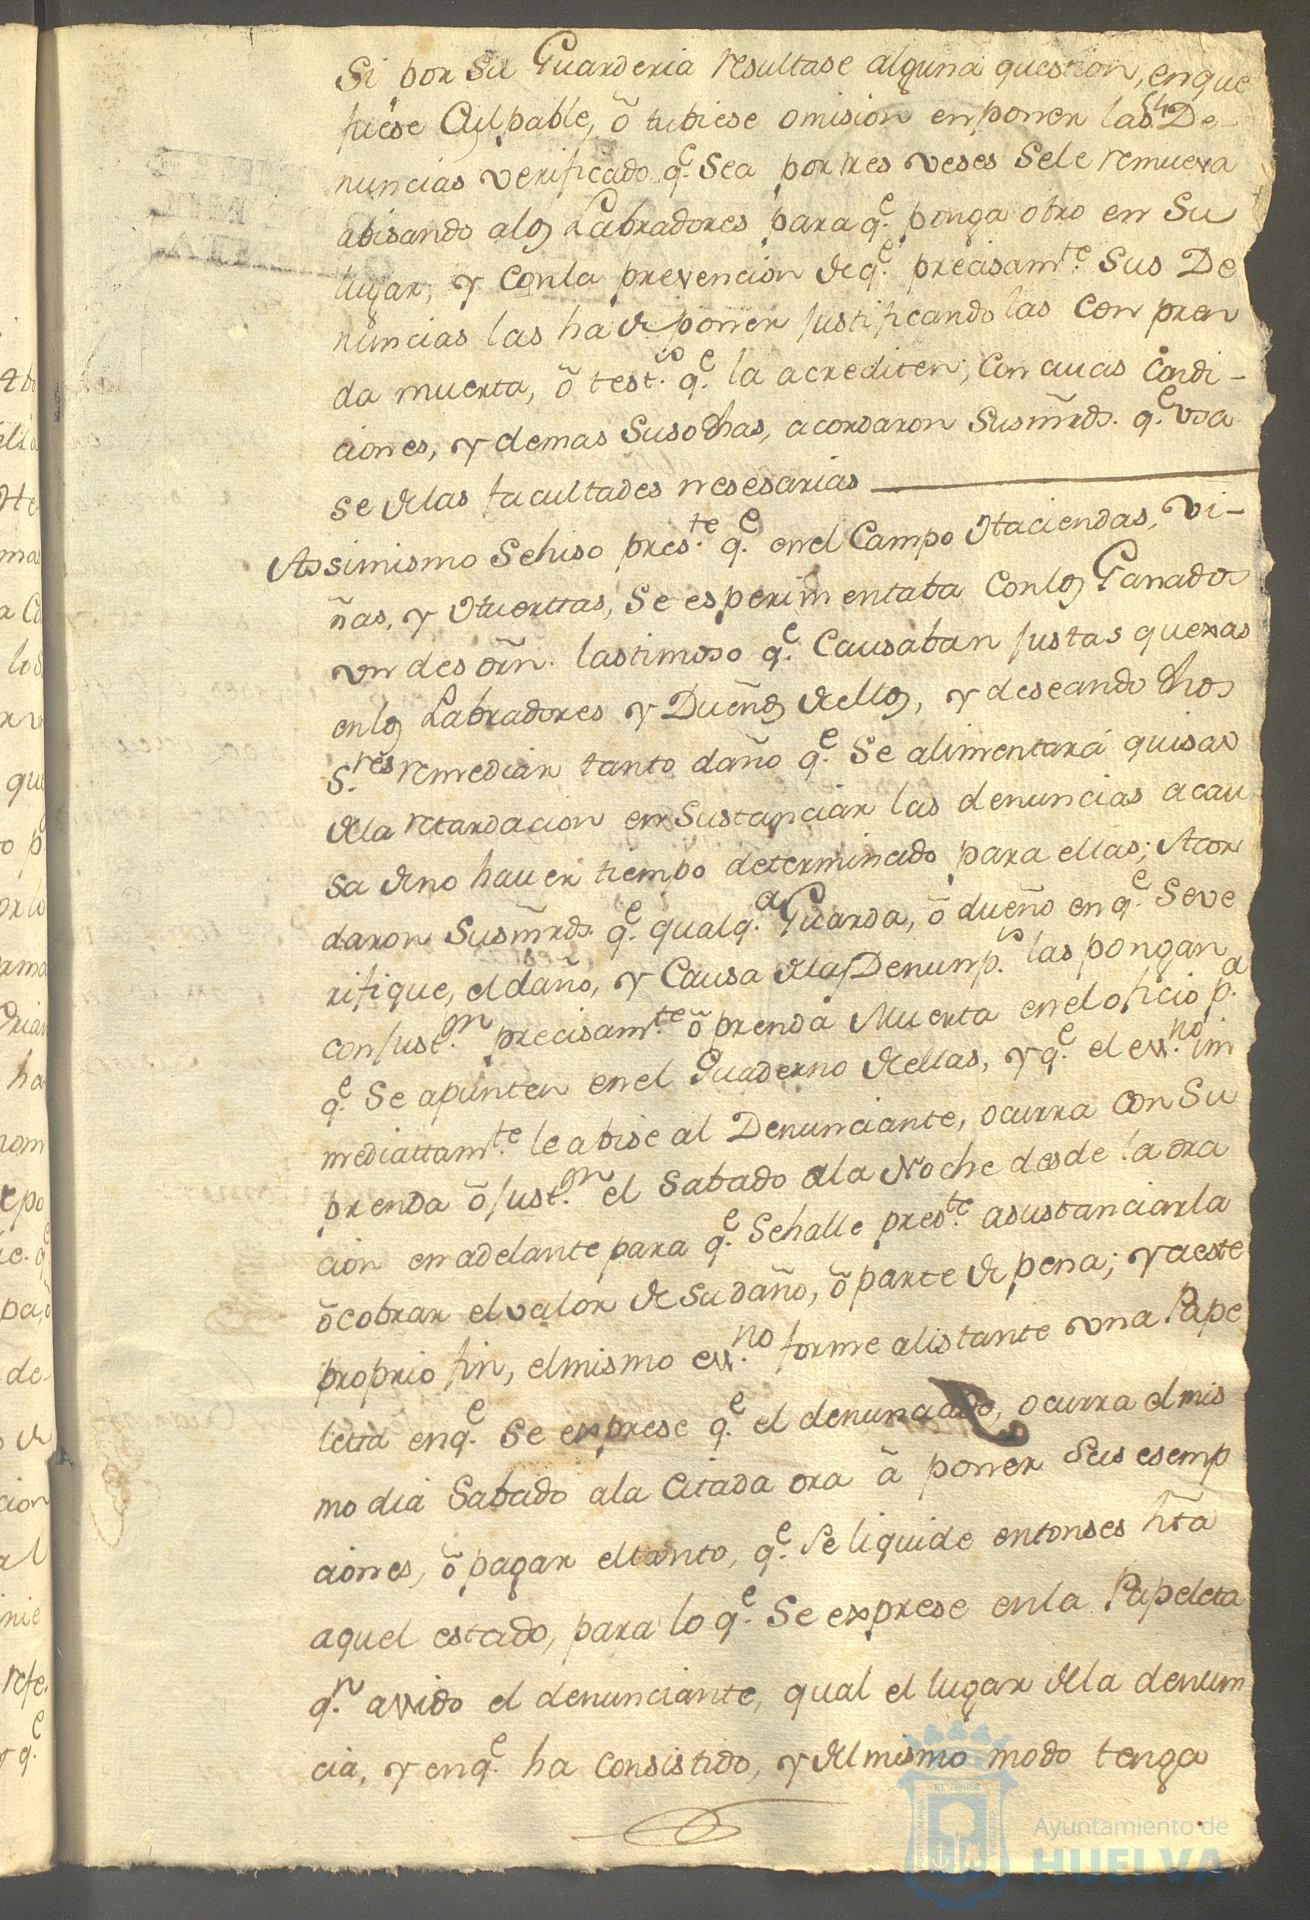 Si por su Guarderia resultase alguna question, en que
fuese Culpable, ô tubiese omision en poner las De-
nuncias verificado q.e sea por tres veses se le remueva
abisando alos Labradores para q.e ponga otro en Su
lugar, y con la prevencion de q.e precisam.te sus De
nuncias las ha de poner justificando las con pren
da muerta, ô test.os q.e la acrediten; con cuias condi-
ciones, y demas susodhas, acordaron Susmrds. q.e usa
se delas facultades nesesarias
Assimismo se hiso pres.te q.e en el Campo Haciendas, Vi-
ñas, y Huerttas, se esperimentaba con los Ganados
un desorn. lastimoso q.e Causaban justas quexas
en los Labradores y Dueños dellos, y deseando dhos
S.res remediar tanto daño q.e se alimentará quisas
dela retardacion en sustanciar las denuncias a cau
sa de no haver tiempo determinado para ellas; Acor
daron Susmrds. q.e qualq.a Guarda, ô dueño en q.e se ve
rifique, el daño, y Causa delas Denunp.s las pongan
con just.on precisam.te ô prenda Muerta en el oficio p.a
q.e se apunten en el Quaderno dellas, y q.e el ess.no im
mediattam.te le abise al Denunciante, ocurra con Su
prenda ô just.on el Sabado ala Noche desde la ora
cion en adelante para q.e se halle pres.te a sustanciarla
ô cobrar el valor de su daño, ô parte de pena; y a este
proprio fin, el mismo ess.no forme al istante una Pape
letta en q.e se exprese q.e el denunciado, ocurra el mis
mo dia Sabado ala citada ora â poner sus esemp
ciones, ô pagar el tanto, q.e se liquide entonses hta
aquel estado, para lo q.e se exprese en la Papeleta
q.n a sido el denunciante, qual el lugar dela denun
cia, y en q.e ha consistido, y del mismo modo tenga
Ayuntamiento de
HUELVA